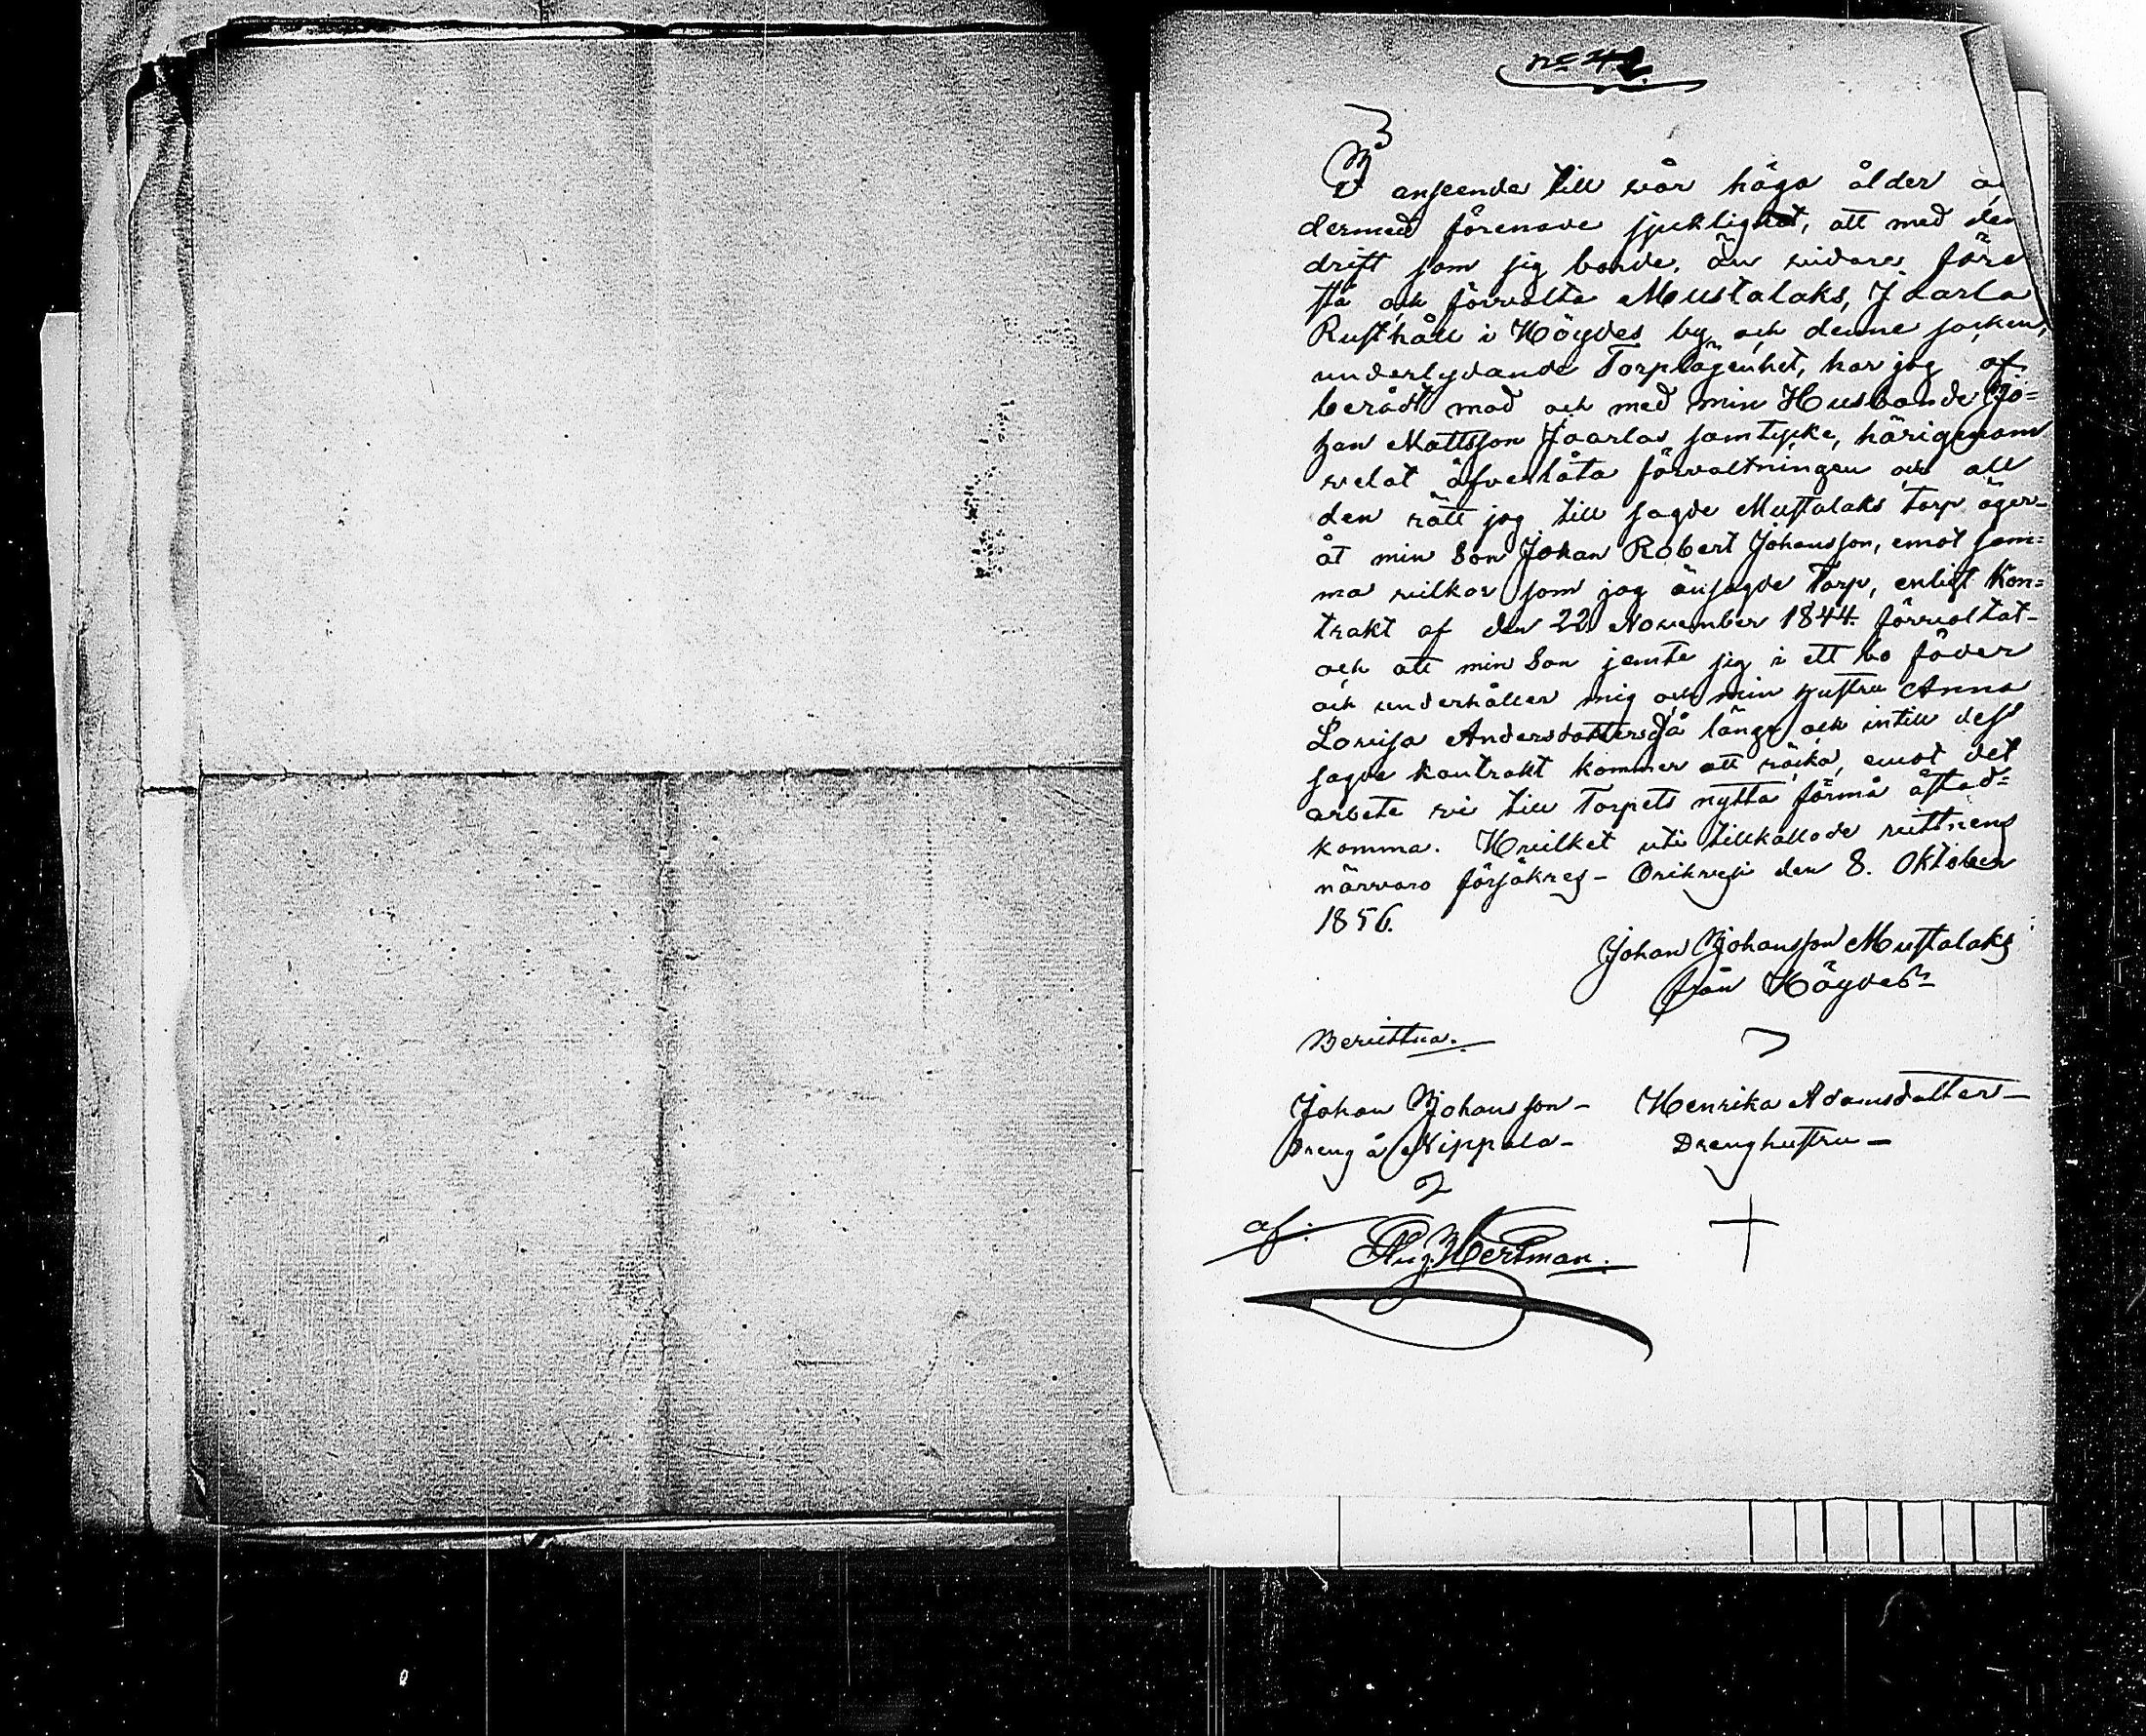 no 42
I anseende till vår höga ålder o
dermed förenade sjuklighet, att med den
drift som sig borde, än vidare före
stå och förvalta Mustalaks, Jaarla
Rusthåll i Höydes by och denne socken,
underlydande Torplägenhet, har jag af
berådt mod och med min Husbonde Jo=
han Mattsson Jaarlas samtycke, härigenom
velat öfverlåta förvaltningen och all
den rätt jag till sagde Mustalaks torp äger-
åt min Son Johan Robert Johansson, emot sam=
ma vilkor som jag ansagde Torp, enligt Kon=
trakt af den 22 November 1844. förvaltat-
och att min Son jemte sig i ett bo föder
och underhåller mig och min hustru Anna
Lovisa Andersdotter så länge och intill dess
sagde kontrakt kommer att räcka, emot det
arbete vi till Torpets nytta förmå åstad=
komma. Hvilket uti tillkallade vittnens
närvaro försäkres- Orihvesi den 8. Oktober
1856.
Johan Johansson Mustalaks
från Höydes
Bevittna.
Johan Johansson- Henrika Adamsdotter-
Dreng å Nippala- Drenghustru-
af: Aug. Hertman.